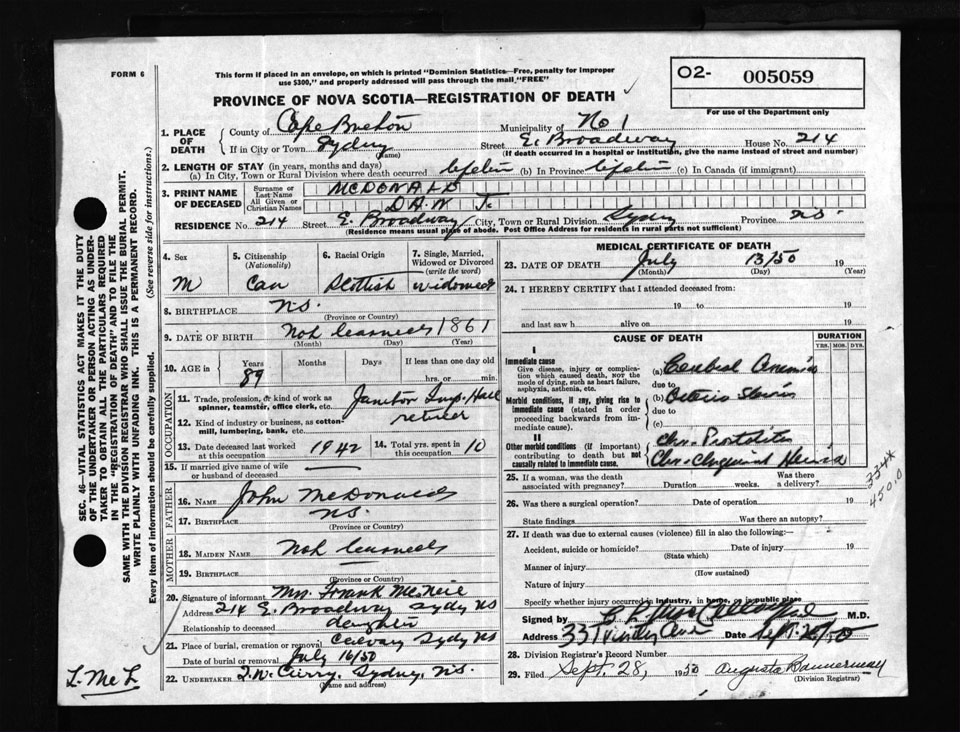 FORM 6
This form if placed in an envelope, on which is printed "Dominion Statistics—Free, penalty for improper
use $300," and properly addressed will pass through the mail "FREE"
O2- 005059
For use of the Department only
PROVINCE OF NOVA SCOTIA—REGISTRATION OF DEATH
1. PLACE OF DEATH
County of Cape Breton Municipality of No 1
If in City or Town Sydney (Name) Street E. Broadway House No. 214
(If death occurred in a hospital or institution, give the name instead of street and number)
2. LENGTH OF STAY (in years, months and days)
(a) In City, Town or Rural Division where death occurred lifetime (b) In Province lifetime (c) In Canada (if immigrant)
3. PRINT NAME OF DECEASED
Surname or Last Name MCDONALD
All Given or Christian Names DAN J.
RESIDENCE No. 214 Street E. Broadway City, Town or Rural Division Sydney Province N.S.
(Residence means usual place of abode. Post Office Address for residents in rural parts not sufficient)
4. Sex M
5. Citizenship (Nationality) Can
6. Racial Origin Scottish
7. Single, Married, Widowed or Divorced (write the word) widowed
8. BIRTHPLACE N.S.
(Province or Country)
9. DATE OF BIRTH Not learned 1861
(Month) (Day) (Year)
10. AGE in Years 89 Months Days If less than one day old
hrs. or min.
OCCUPATION
11. Trade, profession, or kind of work as spinner, teamster, office clerk, etc. Janitor Hall
12. Kind of industry or business, as cotton-mill, lumbering, bank, etc. retired
13. Date deceased last worked at this occupation 1942
14. Total yrs. spent in this occupation 10
15. If married give name of wife or husband of deceased
FATHER
16. NAME John McDonald
17. BIRTHPLACE N.S.
(Province or Country)
MOTHER
18. MAIDEN NAME Not learned
19. BIRTHPLACE
(Province or Country)
20. Signature of informant Mrs. Frank McNeil
Address 214 E. Broadway Sydney NS
Relationship to deceased daughter
21. Place of burial, cremation or removal Sydney NS
Date of burial or removal July 16/50
22. UNDERTAKER T.W. Curry, Sydney, N.S.
(Name and address)
MEDICAL CERTIFICATE OF DEATH
23. DATE OF DEATH July 13/50 19
(Month) (Day) (Year)
24. I HEREBY CERTIFY that I attended deceased from:
19 to 19
and last saw h alive on 19
CAUSE OF DEATH
DURATION
YRS. MOS. DYS.
I
Immediate cause
Give disease, injury or complication which caused death, NOT the mode of dying, such as heart failure, asphyxia, asthenia, etc.
(a) Cerebral Anemia
due to
Morbid conditions, if any, giving rise to immediate cause (stated in order proceeding backwards from immediate cause).
(b)
due to
(c)
II
Other morbid conditions (if important) contributing to death but not causally related to immediate cause.
Chr. Prostatitis
Chr. Inguinal Hernia
334x
450.0
25. If a woman, was the death associated with pregnancy? Duration weeks. Was there a delivery?
26. Was there a surgical operation? Date of operation 19
State findings Was there an autopsy?
27. If death was due to external causes (violence) fill in also the following:—
Accident, suicide or homicide? Date of injury 19
(State which)
Manner of injury
(How sustained)
Nature of injury
Specify whether injury occurred in industry, in home, or in public place
Signed by M.D.
Address 33 Trinity Ave Date Sept. 26/50
28. Division Registrar's Record Number
29. Filed Sept. 28, 1950 Augusta Bannerman
(Division Registrar)
SEC. 46—VITAL STATISTICS ACT MAKES IT THE DUTY
OF THE UNDERTAKER OR PERSON ACTING AS UNDER-
TAKER TO OBTAIN ALL THE PARTICULARS REQUIRED
IN THE "REGISTRATION OF DEATH" AND TO FILE THE
SAME WITH THE DIVISION REGISTRAR WHO SHALL ISSUE THE BURIAL PERMIT.
WRITE PLAINLY WITH UNFADING INK. THIS IS A PERMANENT RECORD.
Every item of information should be carefully supplied. (See reverse side for instructions.)
L. McL